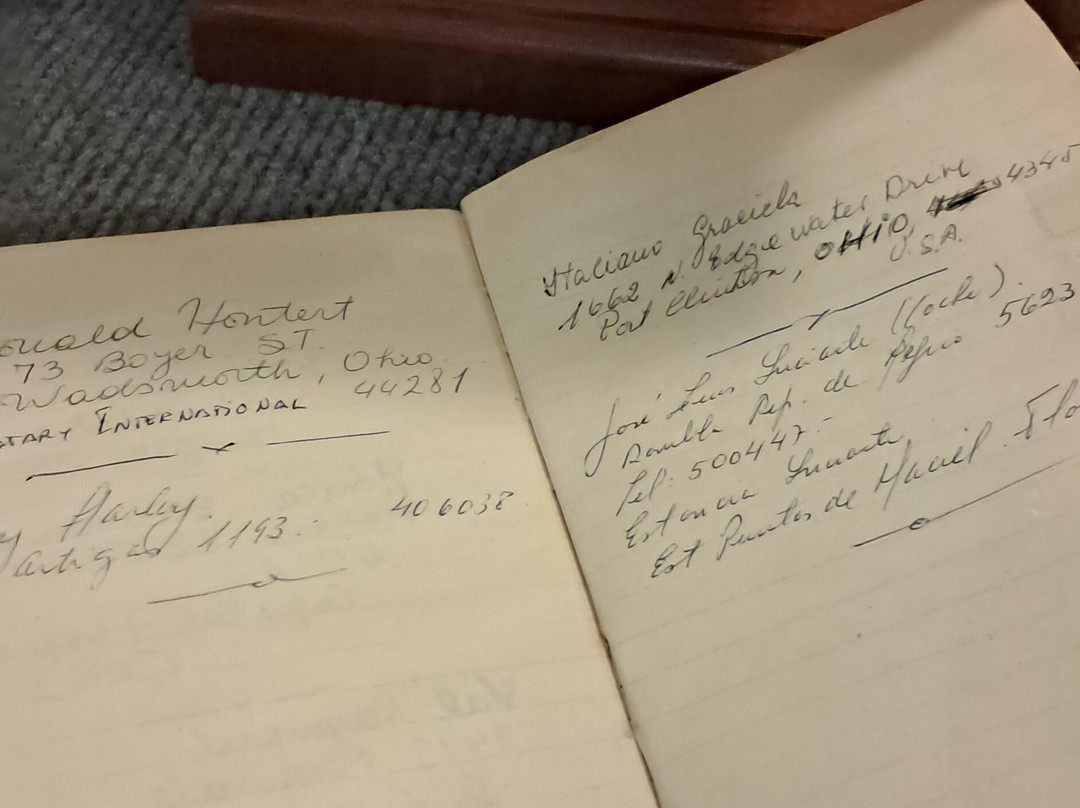 onald Hontert
73 Boyer ST.
Wadsworth, Ohio
44281
OTARY INTERNATIONAL
y Harley.
Artigas 1193.
406038
Italiano Graciela
1662 N. Edgewater Drive
Port Clinton, OHIO, 4345
U.S.A.
José Luis
Rambla Rep. de 5623
Tel: 500447.-
Estancia
Est Puntas de Maciel. Flo